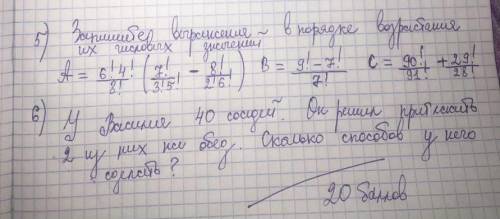 5) Запишите выражения в порядке возрастания
их числовых значений
A = 6!4!/8! (7!/3!5! - 8!/2!6!) B = 9!-7!/7! C = 90!/91! + 29!/28!
6) У Василия 40 соседей. Он решил пригласить
2 из них на обед. Сколько способов у него
сделать?
20 баллов